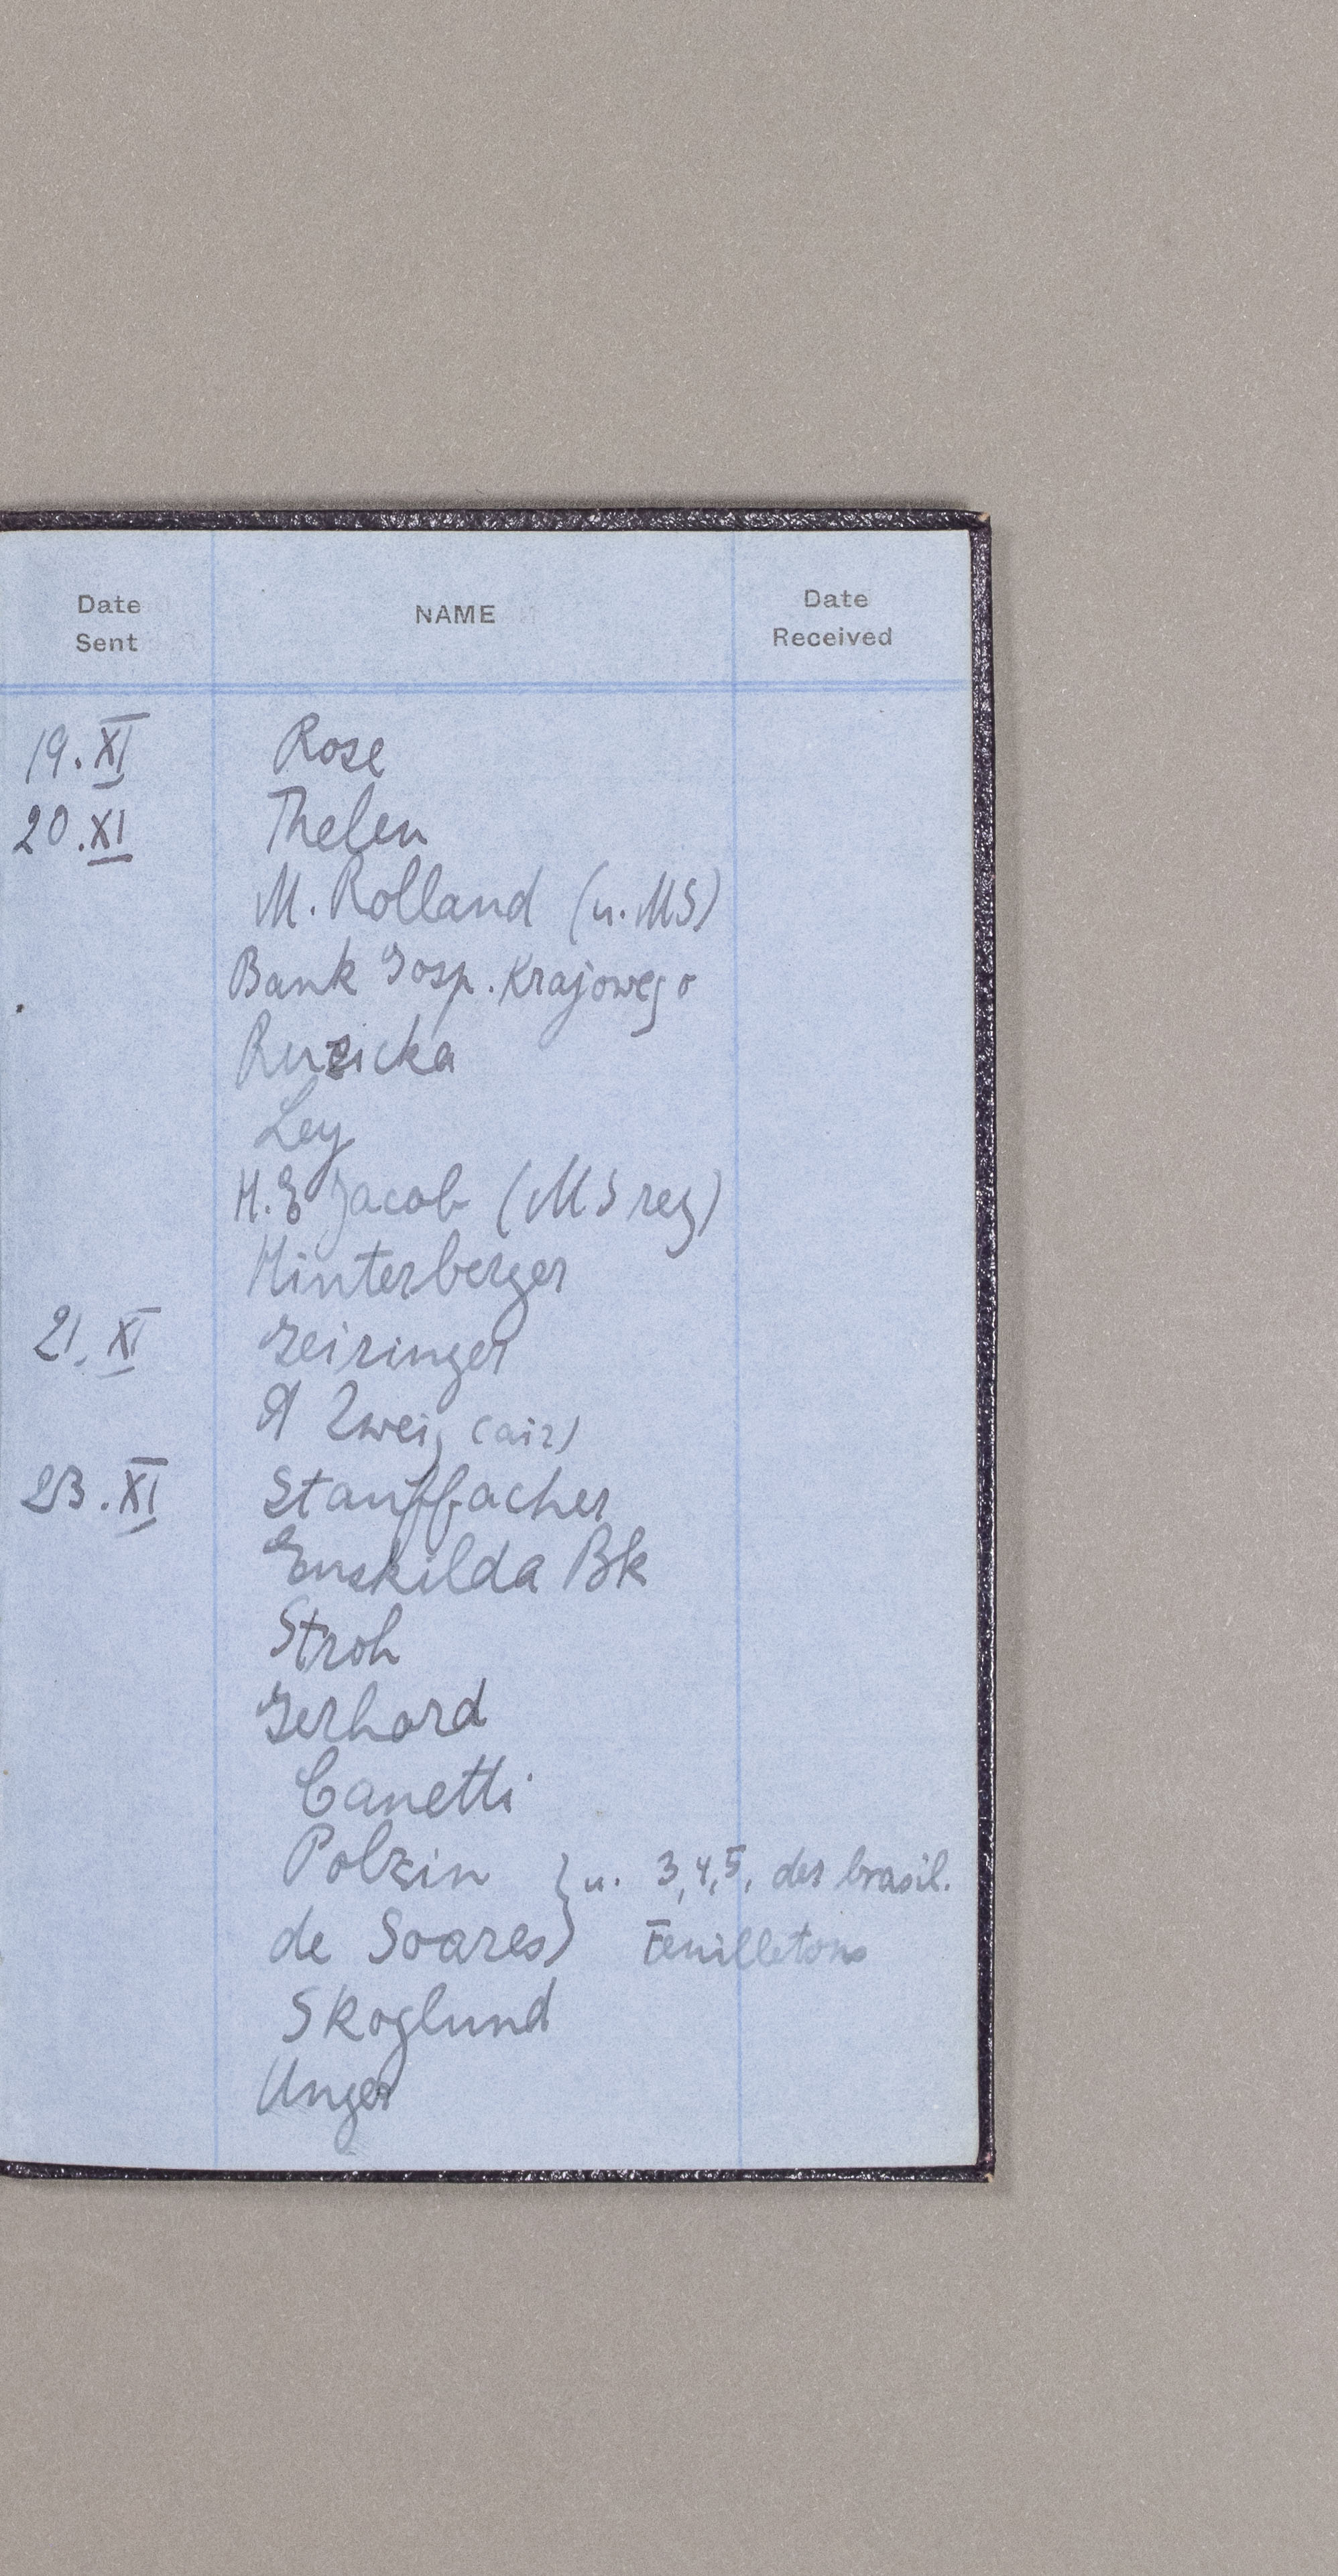 Date Sent NAME Date Received
19.XI Rose
20.XI Thelen
M. Rolland (u. MS)
Bank Gosp. Krajowego
Ruzicka
Ley
H.E Jacob (MS reg)
Hinterberger
21. XI Geiringer
A Zweig (air)
23.XI Stauffacher
Enskilda Bk
Stroh
Gerhard
Canetti
Polzin } u. 3,4,5, der brasil.
de Soares } Feuilletons
Skoglund
Unger